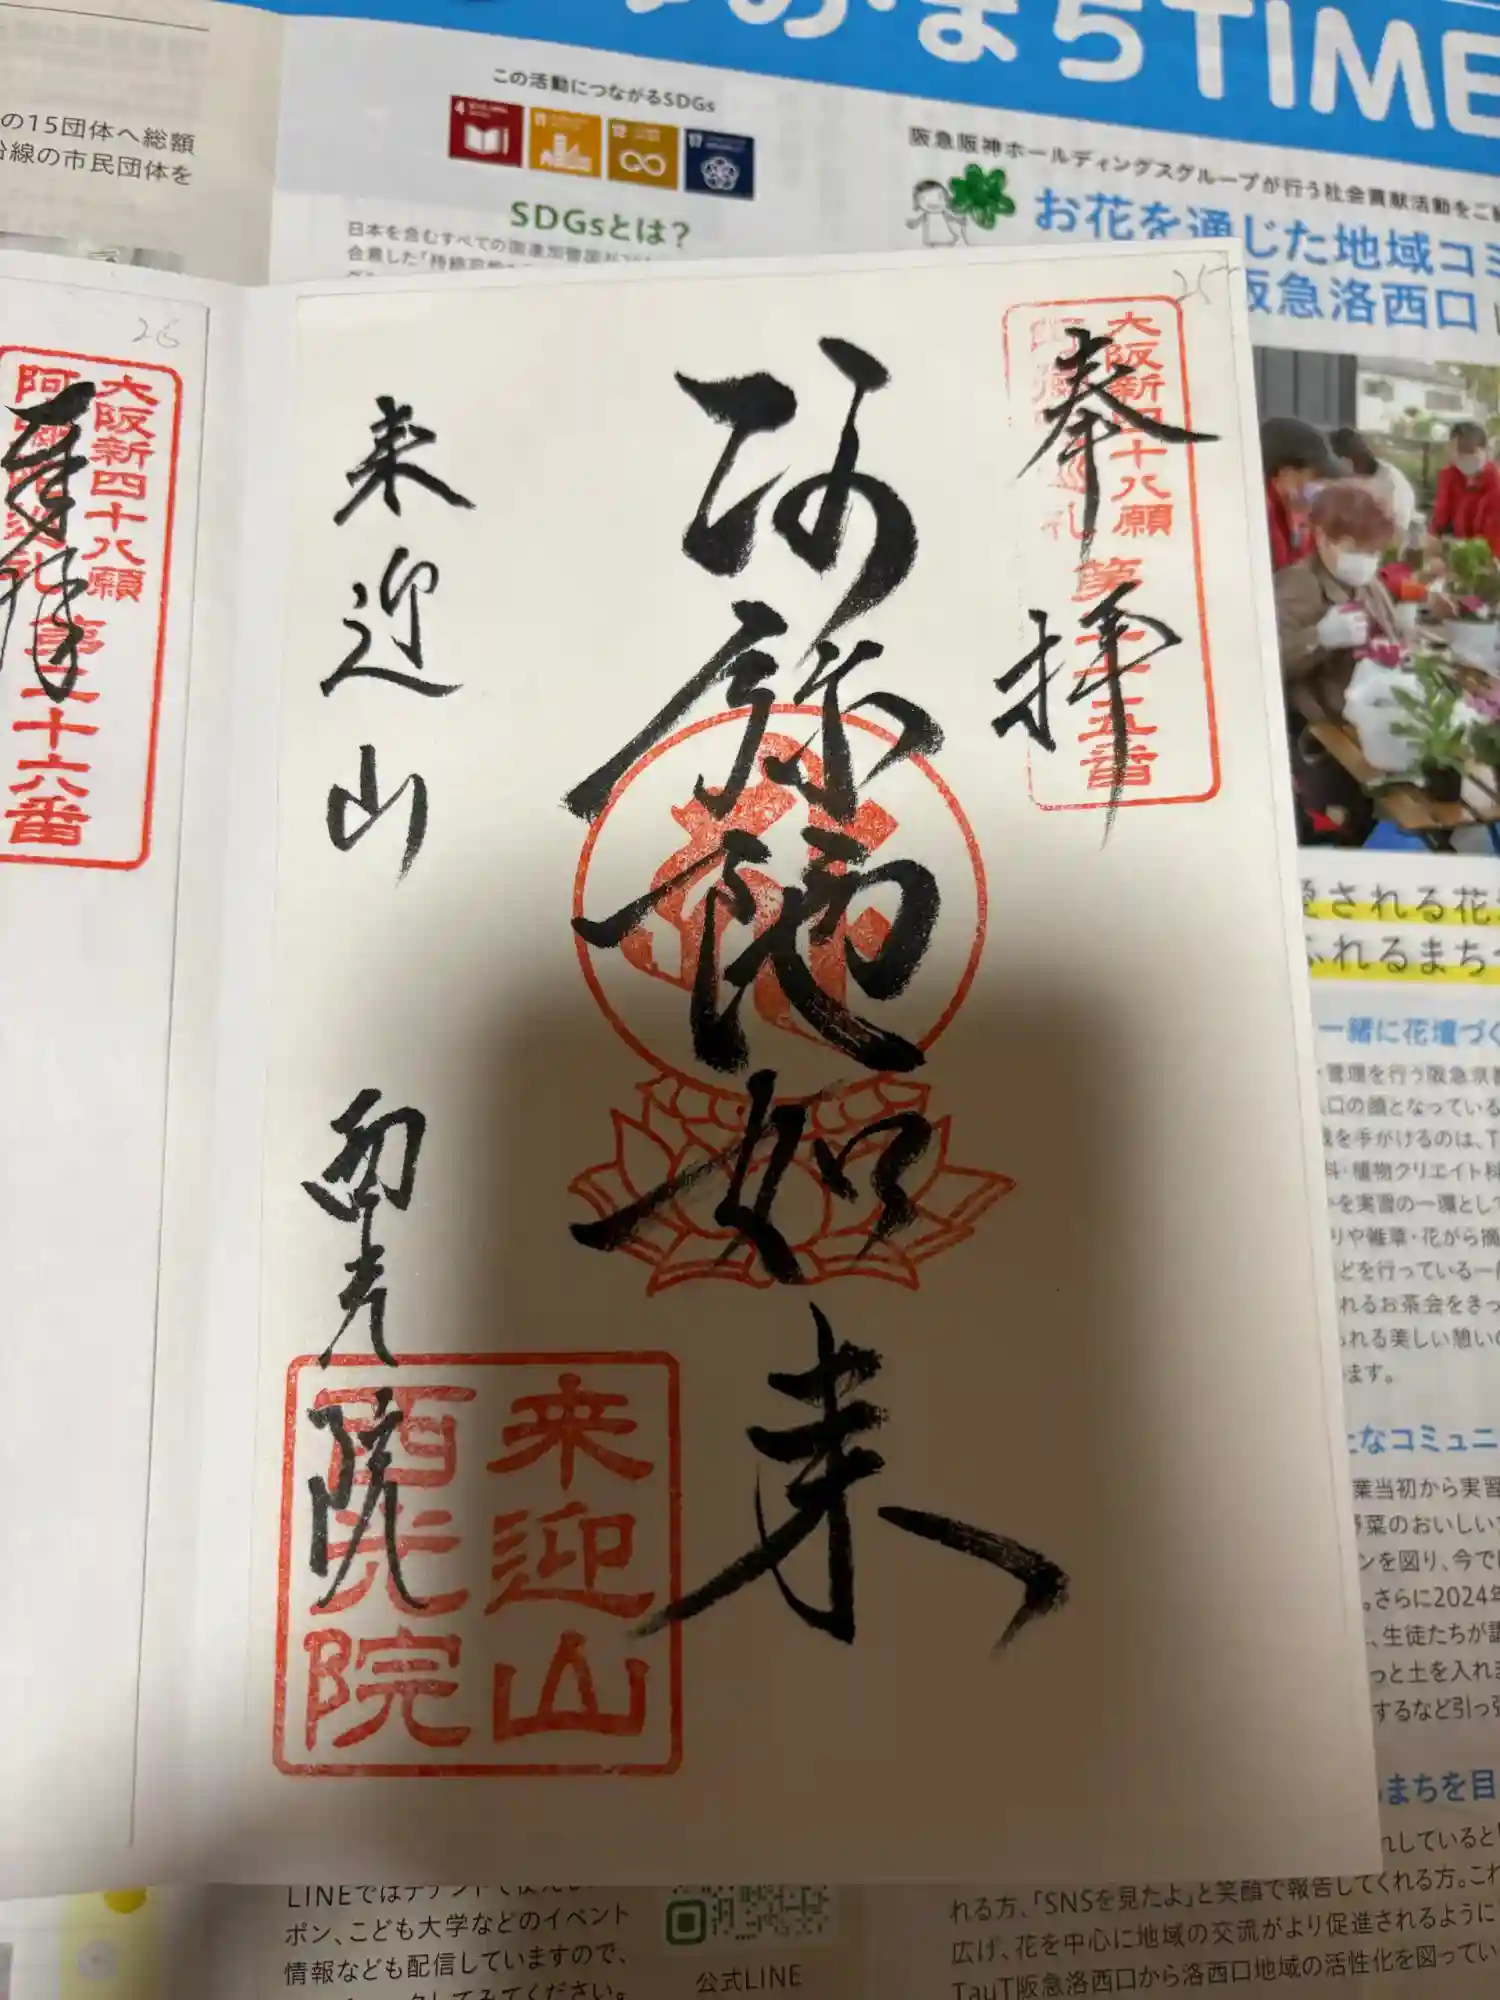 まちTIME
この活動につながるSDGs
の15団体へ総額
沿線の市民団体を
SDGsとは？
日本を含むすべての国連加盟国が
阪急阪神ホールディングスグループが行う社会貢献活動をご紹
お花を通じた地域コミ
阪急洛西口
25
大阪新四十八願
阿弥陀巡礼
第二十五番
奉拝
阿弥陀如来
来迎山
西光院
来迎山
西光院
26
大阪新四十八願
阿弥陀巡礼
第二十六番
奉拝
愛される花
ふれるまち
一緒に花壇づく
管理を行う阪急京都
口の顔となっている
を手がけるのは、T
科・植物クリエイト科
を実習の一環として
りや雑草・花がら摘
どを行っている
れるお茶会をきっ
られる美しい憩いの
ます。
たなコミュニ
業当初から実習
野菜のおいしい
ンを図り、今で
。さらに2024年
、生徒たちが
っと土を入れ
するなど引っ張
まちを目
れしていると
れる方、「SNSを見たよ」と笑顔で報告してくれる方。これ
広げ、花を中心に地域の交流がより促進されるように
TauT阪急洛西口から洛西口地域の活性化を図ってい
LINEでは
ポン、こども大学などのイベント
情報なども配信していますので、
してみてください。
公式LINE